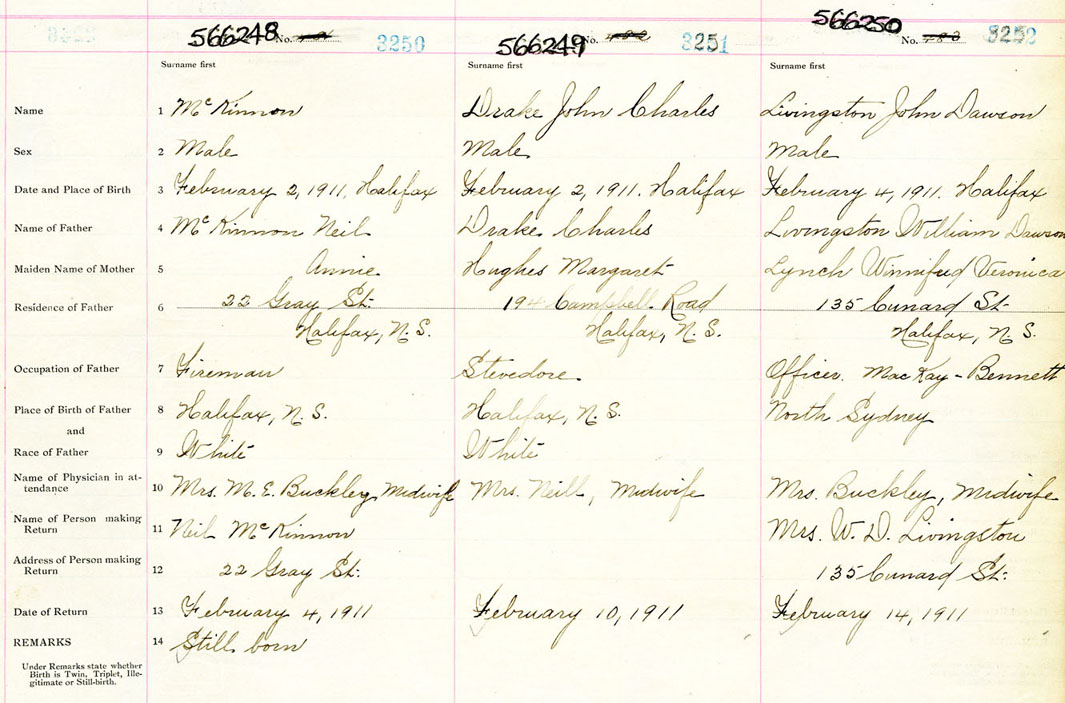 566248 No. 3250
566249 No. 3251
566250 No. 3252
Surname first Surname first Surname first
Name 1 McKinnon Drake John Charles Livingston John Dawson
Sex 2 Male Male Male
Date and Place of Birth 3 February 2, 1911. Halifax February 2, 1911. Halifax February 4, 1911. Halifax
Name of Father 4 McKinnon Neil Drake Charles Livingston William Dawson
Maiden Name of Mother 5 Annie Hughes Margaret Lynch Winnifred Veronica
Residence of Father 6 22 Gray St. 194 Campbell Road 135 Cunard St.
Halifax, N. S. Halifax, N. S. Halifax, N S.
Occupation of Father 7 Fireman Stevedore. Officer. MacKay-Bennett
Place of Birth of Father 8 Halifax, N. S. Halifax, N. S. North Sydney
and
Race of Father 9 White White
Name of Physician in at-
tendance 10 Mrs. M. E. Buckley, Midwife Mrs. Neill, Midwife Mrs. Buckley, Midwife
Name of Person making
Return 11 Neil McKinnon Mrs. W. D. Livingston
Address of Person making
Return 12 22 Gray St: 135 Cunard St:
Date of Return 13 February 4, 1911 February 10, 1911 February 14, 1911
REMARKS 14 Still born
Under Remarks state whether
Birth is Twin, Triplet, Ille-
gitimate or Still-birth.